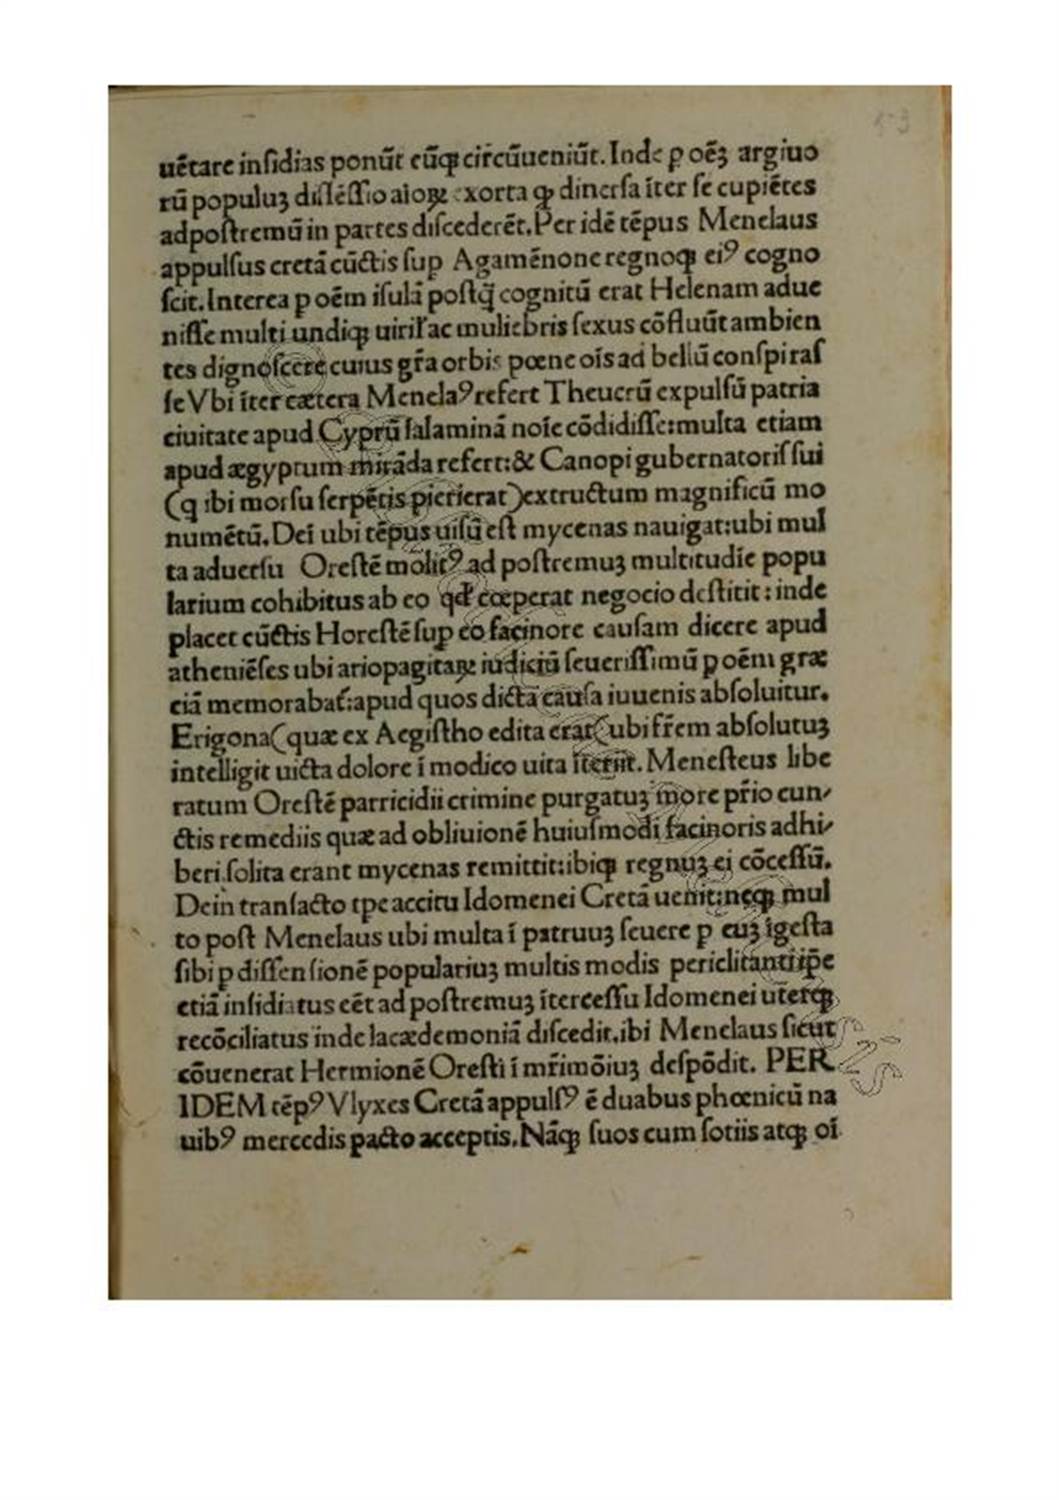 uētare insidias ponūt eūqȝ circūueniūt. Inde ꝑ oēȝ argiuo
rū populuȝ dissēssio aioꝝ exorta qꝫ diuersa īter se cupiētes
adpostremū in partes discederēt. Per idē tēpus Menelaus
appulsus cretā cūctis suꝑ Agamēnone regnoqȝ eiꝰ cogno
scit. Interea ꝑ oēm isulā postq̄ cognitū erat Helenam adue
nisse multi undiqȝ uirilꝭ ac muliebris sexus cōfluūt ambien
tes dignoscere cuius gr̄a orbis pœne oīs ad bellū conspiras
se Vbi īter cætera Menelaꝰ refert Theucrū expulsū patria
ciuitate apud Cyprū salaminā noīe cōdidisse: multa etiam
apud ægyptum mirāda refert: & Canopi gubernatoris sui
(q ibi morsu serpētis pierierat) extructum magnificū mo
numētū. Dei ubi tēpus uisū est mycenas nauigat: ubi mul
ta aduersu Orestē molitꝰ ad postremuȝ multitudīe popu
larium cohibitus ab eo qd̓ cœperat negocio destitit: inde
placet cūctis Horestē suꝑ eo facinore causam dicere apud
atheniēses ubi ariopagitaꝝ iudiciū seuerissimū ꝑ oēm græ
ciā memorabat̄: apud quos dicta causa iuuenis absoluitur.
Erigona (quæ ex Aegistho edita erat( ubi fr̄em absolutuȝ
intelligit uicta dolore ī modico uita īteriit. Menesteus libe
ratum Orestē parricidii crimine purgatuȝ more pr̄io cun/
ctis remediis quæ ad obliuionē huiusmodi facinoris adhi/
beri solita erant mycenas remittit: ibiqȝ regnuȝ ei cōcessū.
Dein transacto tpe accitu Idomenei Cretā uenit: neqȝ mul
to post Menelaus ubi multa ī patruuȝ seuere p euȝ īgesta
sibi ꝑ dissensionē populariuȝ multis modis periclitanti ip̄e
etiā insidiatus eēt ad postremuȝ ītercessu Idomenei uterqȝ
recōciliatus inde lacædemoniā discedit. ibi Menelaus sicut
cōuenerat Hermionē Oresti ī mr̄imōiuȝ despōdit. PER
IDEM tēpꝰ Vlyxes Cretā appulsꝰ ē duabus phœnicū na
uibꝰ mercedis pacto acceptis. Nāqȝ suos cum sotiis atqȝ oī